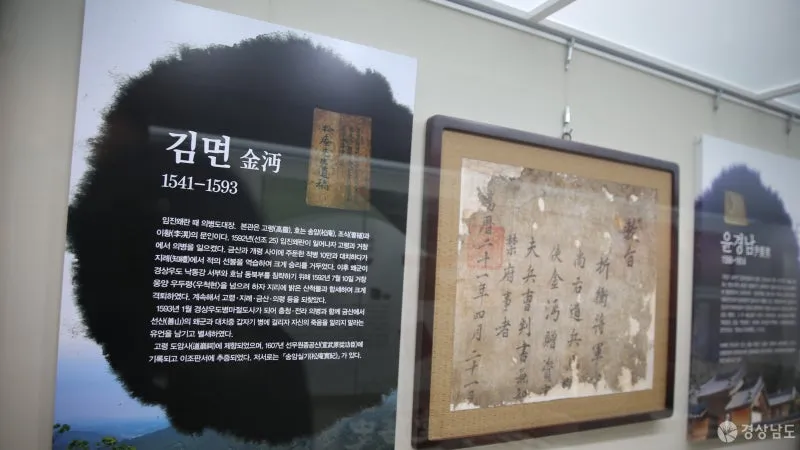 김면 金沔
1541-1593
임진왜란 때 의병도대장, 본관은 고령(高靈), 호는 송암(松庵), 조식(曺植)과
이황(李滉)의 문인이다. 1592년(선조 25) 임진왜란이 일어나자 고령과 거창
에서 의병을 일으켰다. 금산과 개령 사이에 주둔한 적병 10만과 대치하다가
지례(知禮)에서 적의 선봉을 역습하여 크게 승리를 거두었다. 이후 왜군이
경상우도 낙동강 서부와 호남 동북부를 침략하기 위해 1592년 7월 10일 거창
웅양 우두령(우척현)을 넘으려 하자 지리에 밝은 산척들과 함께하여 크게
격퇴하였다. 계속해서 고령·지례·금산·의령 등을 되찾았다.
1593년 1월 경상우도병마절도사가 되어 충청·전라 의병과 함께 금산에서
선산(善山)의 왜군과 대치중 갑자기 병에 걸리자 자신의 죽음을 알리지 말라는
유언을 남기고 별세하였다.
고령 도암사(道巖祠)에 제향되었으며, 1607년 선무원종공신(宣武原從功臣)에
기록되고 이조판서에 추증되었다. 저서로는 『송암실기(松庵實紀)』가 있다.
松庵先生遺稿
敎旨
折衝將軍
尙右道兵
使金沔贈資
夫兵曹判書兼知
禁府事者
萬曆二十一年四月二十一日
윤경남
경상남도